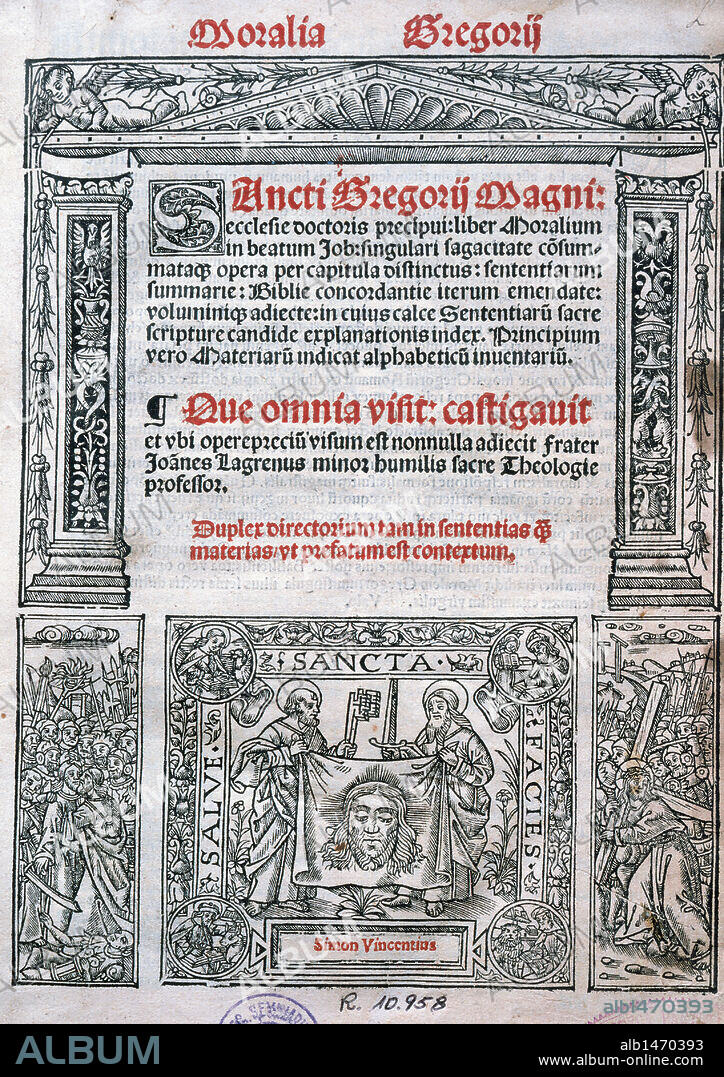 Moralia Gregorij
Sancti Gregorij Magni:
ecclesie doctoris precipui: liber Moralium
in beatum Job: singulari sagacitate cõsum-
mataq̃ opera per capitula distinctus: sententiarum:
summarie: Biblie concordantie iterum emendate:
voluminiq̃ adiecte: in cuius calce Sententiarũ sacre
scripture candide explanationis index. Principium
vero Materiarũ indicat alphabeticũ inuentariũ.
¶ Que omnia visit: castigauit
et vbi operepreciũ visum est nonnulla adiecit frater
Joãnes Lagrenus minor humilis sacre Theologie
professor.
Duplex directorium tam in sententias q̃
materias/ vt prefatum est contextum.
SALVE · SANCTA · FACIES ·
Simon Vincentius
R. 10.958
alb1470393
ALBUM
alb1470393
www.album-online.com